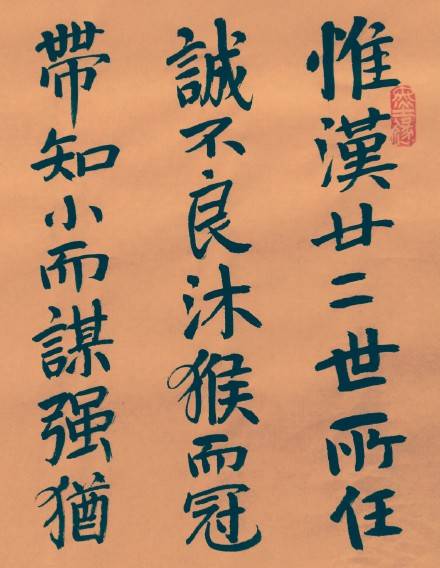 惟漢廿二世所任
誠不良沐猴而冠
帶知小而謀强猶